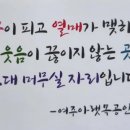 이 피고 열매가 맺히
웃음이 끊이지 않는 곳
대 머무실 자리입니다
-여주아랫목응인